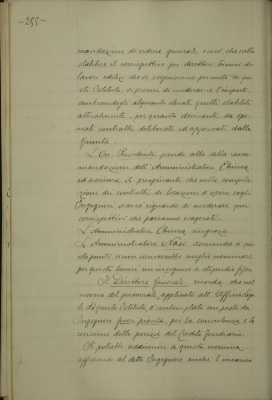 - 255 -
mandazione di ordine generale, e cioè che nello
stabilire il corrispettivo pei direttori tecnici dei
lavori edilizi che si eseguiscono per conto di que-
sto Istituto, si procuri di moderarne l'importo,
sembrandogli alquanto elevati quelli stabiliti
attualmente, per quanto derivanti da spe-
ciali contratti deliberati ed approvati dalla
Giunta.
L'On. Presidente prende atto della racco-
mandazione dell'Amministratore Chierca
ed assicura il preopinante che nella compila-
zione dei contratti di locazione d'opera cogli
Ingegneri si avrà riguardo di moderare quei
corrispettivi che paressero esagerati.
L'Amministratore Chierca ringrazia.
L'Amministratore Nasi domanda a qui
dispunti se non converrebbe meglio nominare
per questi lavori un ingegnere a stipendio fisso.
Il Direttore Generale ricorda che nel
novero del personale applicato all'
di questo Istituto, è contemplato un posto di
Ingegnere fuori pianta, per la consulenza e la
revisione delle perizie del Credito Fondiario.
Si potrebbe addivenire a questa nomina,
affidando al detto Ingegnere anche l'incarico